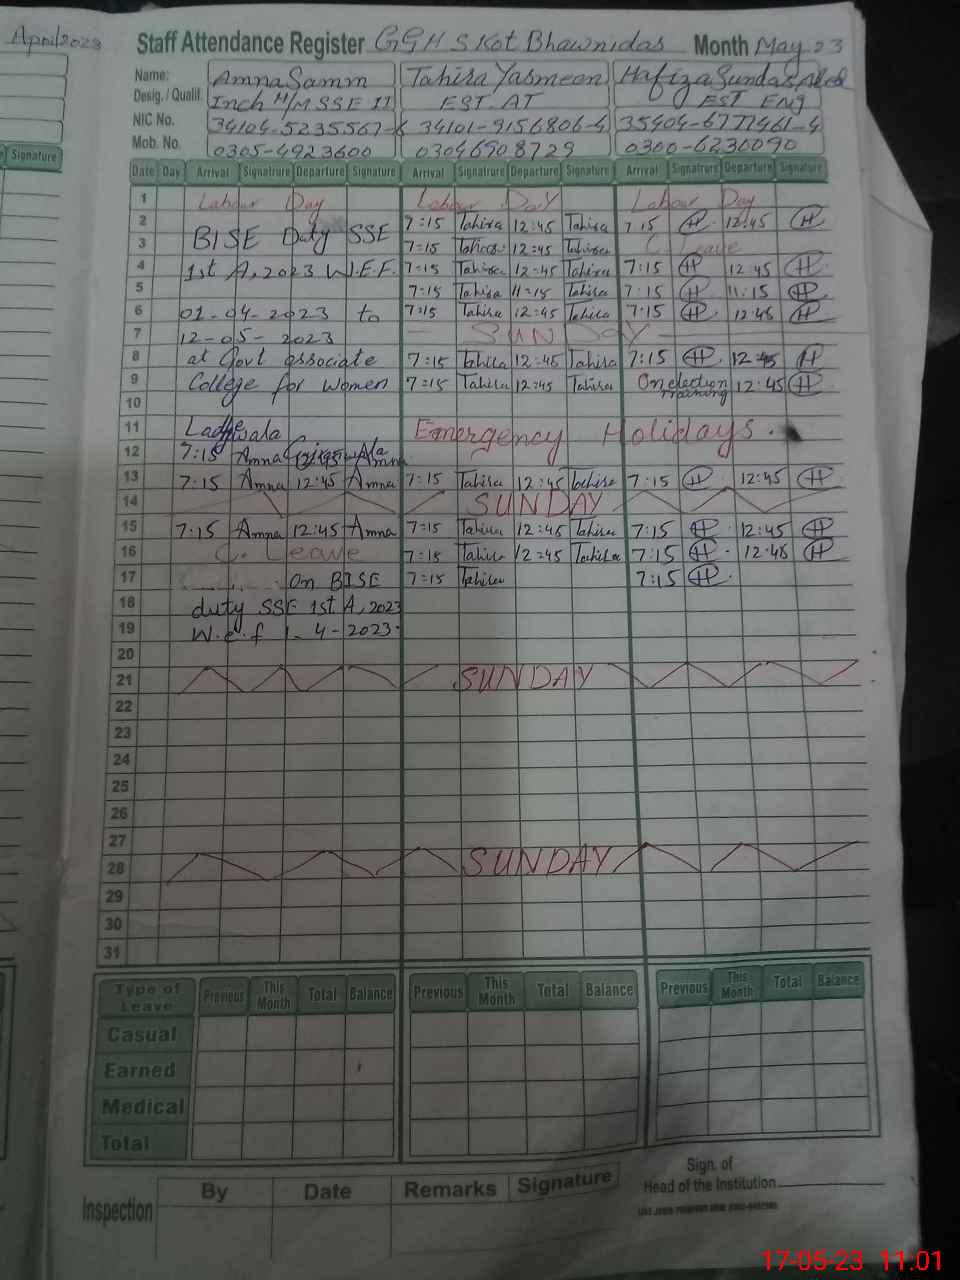 April 2023
Signature
Staff Attendance Register GGHS Kot Bhawnidas Month May 23
Name: Amna Samm Tahira Yasmeen Hafiza Sundas
Desig. / Qualif. Inch H/M SSE II EST. AT EST ENG
NIC No. 34104-5235567- 34101-9156806-4 35404-6777461-4
Mob. No. 0305-4923600 03046908729 0300-6230090
Date Day Arrival Signatrure Departure Signature Arrival Signatrure Departure Signature Arrival Signatrure Departure Signature
1 Labour Day Labour Day Labour Day
2 7:15 Tahira 12:45 Tahira 7:15 H 12:45 H
BISE Duty SSE
3 7:15 Tahira 12:45 Tahira C. Leave
4 1st A, 2023 W.E.F. 7:15 Tahira 12:45 Tahira 7:15 H 12:45 H
5 7:15 Tahira 11:15 Tahira 7:15 H 11:15 H
6 01-04-2023 to 7:15 Tahira 12:45 Tahira 7:15 H 12:45 H
7 12-05-2023 SUNDAY
8 at Govt associate 7:15 Tahira 12:45 Tahira 7:15 H 12:45 H
9 College for women 7:15 Tahira 12:45 Tahira On election training 12:45 H
10
11 Ladhewala Emergency Holidays.
12 7:15 Amna 12:45 Amna
13 7:15 Amna 12:45 Amna 7:15 Tahira 12:45 Tahira 7:15 H 12:45 H
14 SUNDAY
15 7:15 Amna 12:45 Amna 7:15 Tahira 12:45 Tahira 7:15 H 12:45 H
16 C. Leave 7:15 Tahira 12:45 Tahira 7:15 H 12:45 H
17 On BISE 7:15 Tahira 7:15 H
18 duty SSE 1st A, 2023
19 W.e.f 1-4-2023.
20
21 SUNDAY
22
23
24
25
26
27
28 SUNDAY
29
30
31
Type of Leave Previous This Month Total Balance Previous This Month Total Balance Previous This Month Total Balance
Casual
Earned
Medical
Total
Inspection By Date Remarks Signature
Sign. of
Head of the Institution
17-05-23 11:01